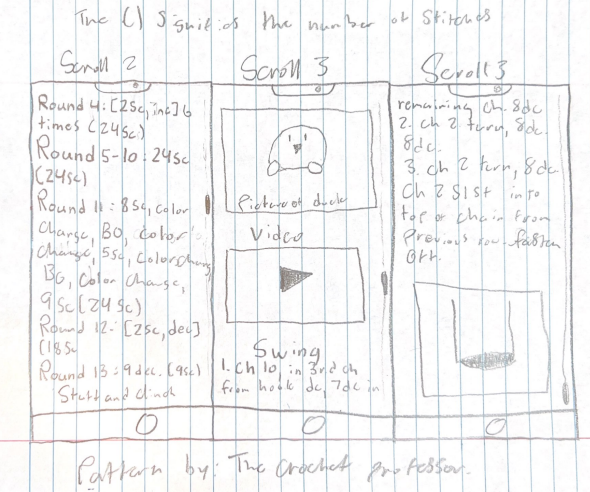 The () Signifies the number of Stitches
Scroll 2
Round 4: [2sc, inc] 6
times (24sc)
Round 5-10: 24sc
(24sc)
Round 11: 8sc, color
change, BO, color
change, 5sc, color chang
BO, Color Change,
9sc (24sc)
Round 12: [2sc, dec]
(18sc
Round 13: 9 dec. (9sc)
Stuff and Cinch
Scroll 3
Picture of duck
Video
Swing
1. Ch 10, in 3rd ch
from hook dc, 7dc in
Scroll 3
remaining ch. 8dc
2. ch 2 turn, 8dc.
8dc.
3. ch 2 turn, 8dc
Ch 2 Slst into
top of chain from
Previous row. fasten
Off.
Pattern by: The Crochet professor.